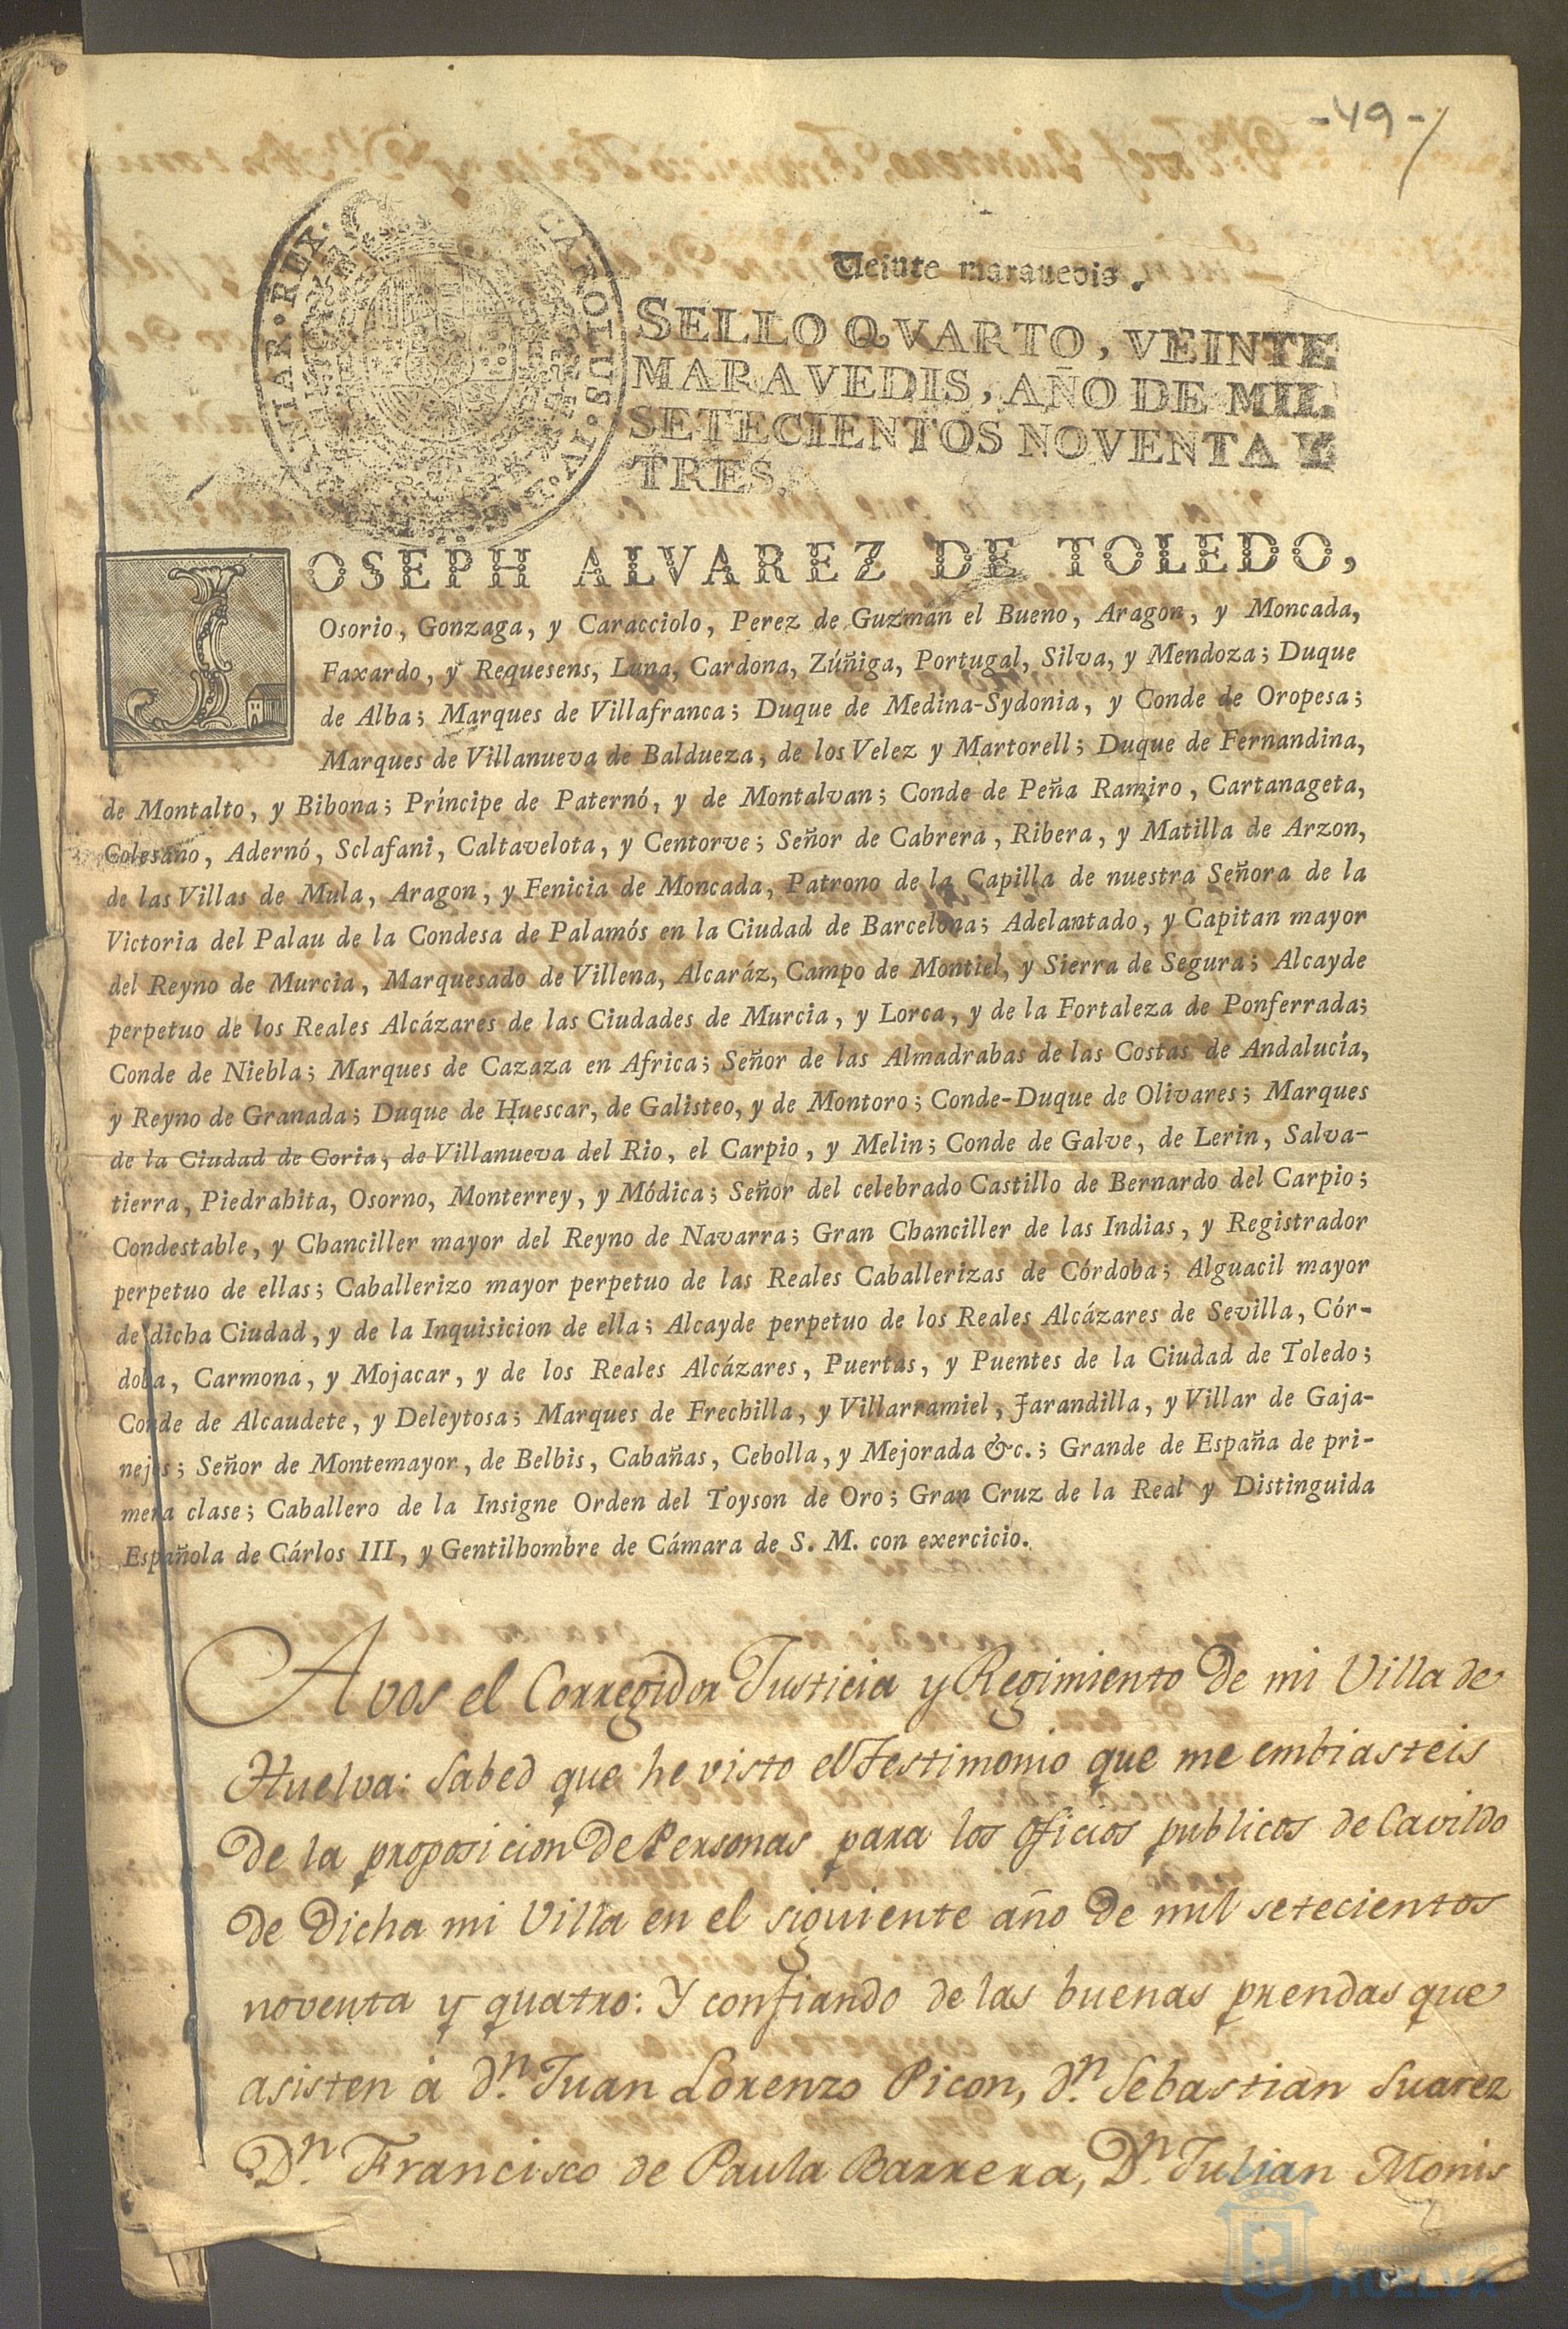 -49-
Veinte maravedis.
CAROLUS
REX.
SELLO QVARTO, VEINTE
MARAVEDIS, AÑO DE MIL
SETECIENTOS NOVENTA Y
TRES.
JOSEPH ALVAREZ DE TOLEDO,
Osorio, Gonzaga, y Caracciolo, Perez de Guzmán el Bueno, Aragon, y Moncada,
Faxardo, y Requesens, Luna, Cardona, Zúñiga, Portugal, Silva, y Mendoza; Duque
de Alba; Marques de Villafranca; Duque de Medina-Sydonia, y Conde de Oropesa;
Marques de Villanueva de Baldueza, de los Velez y Martorell; Duque de Fernandina,
de Montalto, y Bibona; Príncipe de Paternó, y de Montalvan; Conde de Peña Ramiro, Cartanageta,
Colesano, Adernó, Sclafani, Caltavelota, y Centorve; Señor de Cabrera, Ribera, y Matilla de Arzon,
de las Villas de Mula, Aragon, y Fenicia de Moncada, Patrono de la Capilla de nuestra Señora de la
Victoria del Palau de la Condesa de Palamós en la Ciudad de Barcelona; Adelantado, y Capitan mayor
del Reyno de Murcia, Marquesado de Villena, Alcaráz, Campo de Montiel, y Sierra de Segura; Alcayde
perpetuo de los Reales Alcázares de las Ciudades de Murcia, y Lorca, y de la Fortaleza de Ponferrada;
Conde de Niebla; Marques de Cazaza en Africa; Señor de las Almadrabas de las Costas de Andalucía,
y Reyno de Granada; Duque de Huescar, de Galisteo, y de Montoro; Conde-Duque de Olivares; Marques
de la Ciudad de Coria, de Villanueva del Rio, el Carpio, y Melin; Conde de Galve, de Lerin, Salva-
tierra, Piedrahita, Osorno, Monterrey, y Módica; Señor del celebrado Castillo de Bernardo del Carpio;
Condestable, y Chanciller mayor del Reyno de Navarra; Gran Chanciller de las Indias, y Registrador
perpetuo de ellas; Caballerizo mayor perpetuo de las Reales Caballerizas de Córdoba; Alguacil mayor
de dicha Ciudad, y de la Inquisicion de ella; Alcayde perpetuo de los Reales Alcázares de Sevilla, Cór-
doba, Carmona, y Mojacar, y de los Reales Alcázares, Puertas, y Puentes de la Ciudad de Toledo;
Conde de Alcaudete, y Deleytosa; Marques de Frechilla, y Villarramiel, Jarandilla, y Villar de Gaja-
nejos; Señor de Montemayor, de Belbis, Cabañas, Cebolla, y Mejorada &c.; Grande de España de pri-
mera clase; Caballero de la Insigne Orden del Toyson de Oro; Gran Cruz de la Real y Distinguida
Española de Cárlos III, y Gentilhombre de Cámara de S. M. con exercicio.
A vos el Corregidor Justicia y Regimiento De mi Villa de
Huelva: Sabed que he visto el Testimonio que me embiasteis
De la proposicion De Personas para los oficios publicos de Cavildo
De Dicha mi Villa en el siguiente año De mil setecientos
noventa y quatro: Y confiando de las buenas prendas que
asisten á dn. Juan Lorenzo Picon, dn. Sebastian Suarez
Dn. Francisco de Paula Barrera, Dn. Julian Monis
Ayuntamiento de
HUELVA